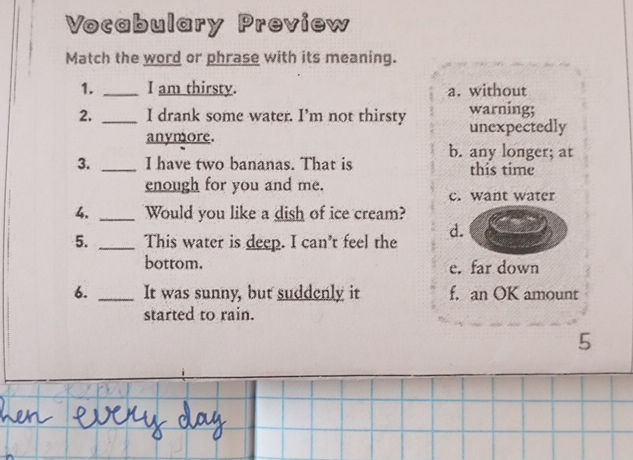 Vocabulary Preview
Match the word or phrase with its meaning.
1. ____ I am thirsty.
2. ____ I drank some water. I'm not thirsty
anymore.
3. ____ I have two bananas. That is
enough for you and me.
4. ____ Would you like a dish of ice cream?
5. ____ This water is deep. I can't feel the
bottom.
6. ____ It was sunny, but suddenly it
started to rain.
a. without
warning;
unexpectedly
b. any longer; at
this time
c. want water
d.
e. far down
f. an OK amount
5
every day